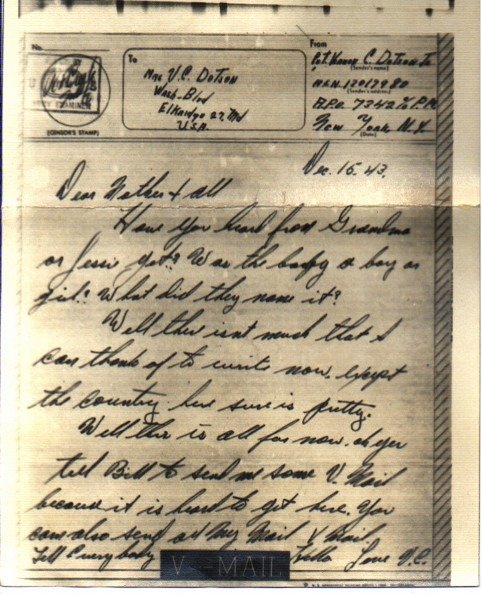 No.
(CENSOR'S STAMP)
To
Mrs V.C. Dotson
Wash. Blvd
Elkridge 27, Md
U.S.A.
From
Pvt. C. Dotson Jr
(Sender's name)
A.S.N. 13017980
(Sender's address)
A.P.O. 7342 % P.M.
New York N.Y.
(Date)
Dec. 15, 43
Dear Mother & all
Have you heard from Grandma
or Jessie yet? Was the baby a boy or
girl? What did they name it?
Well ther isnt much that I
can thank of to write now. except
the country here sure is pretty.
Well this is all for now. oh yea
tell Bill to send me some V. Mail
because it is hard to get here. You
can also send all my Mail V Mail.
Tell Everybody Hello Love V.C.
V - MAIL